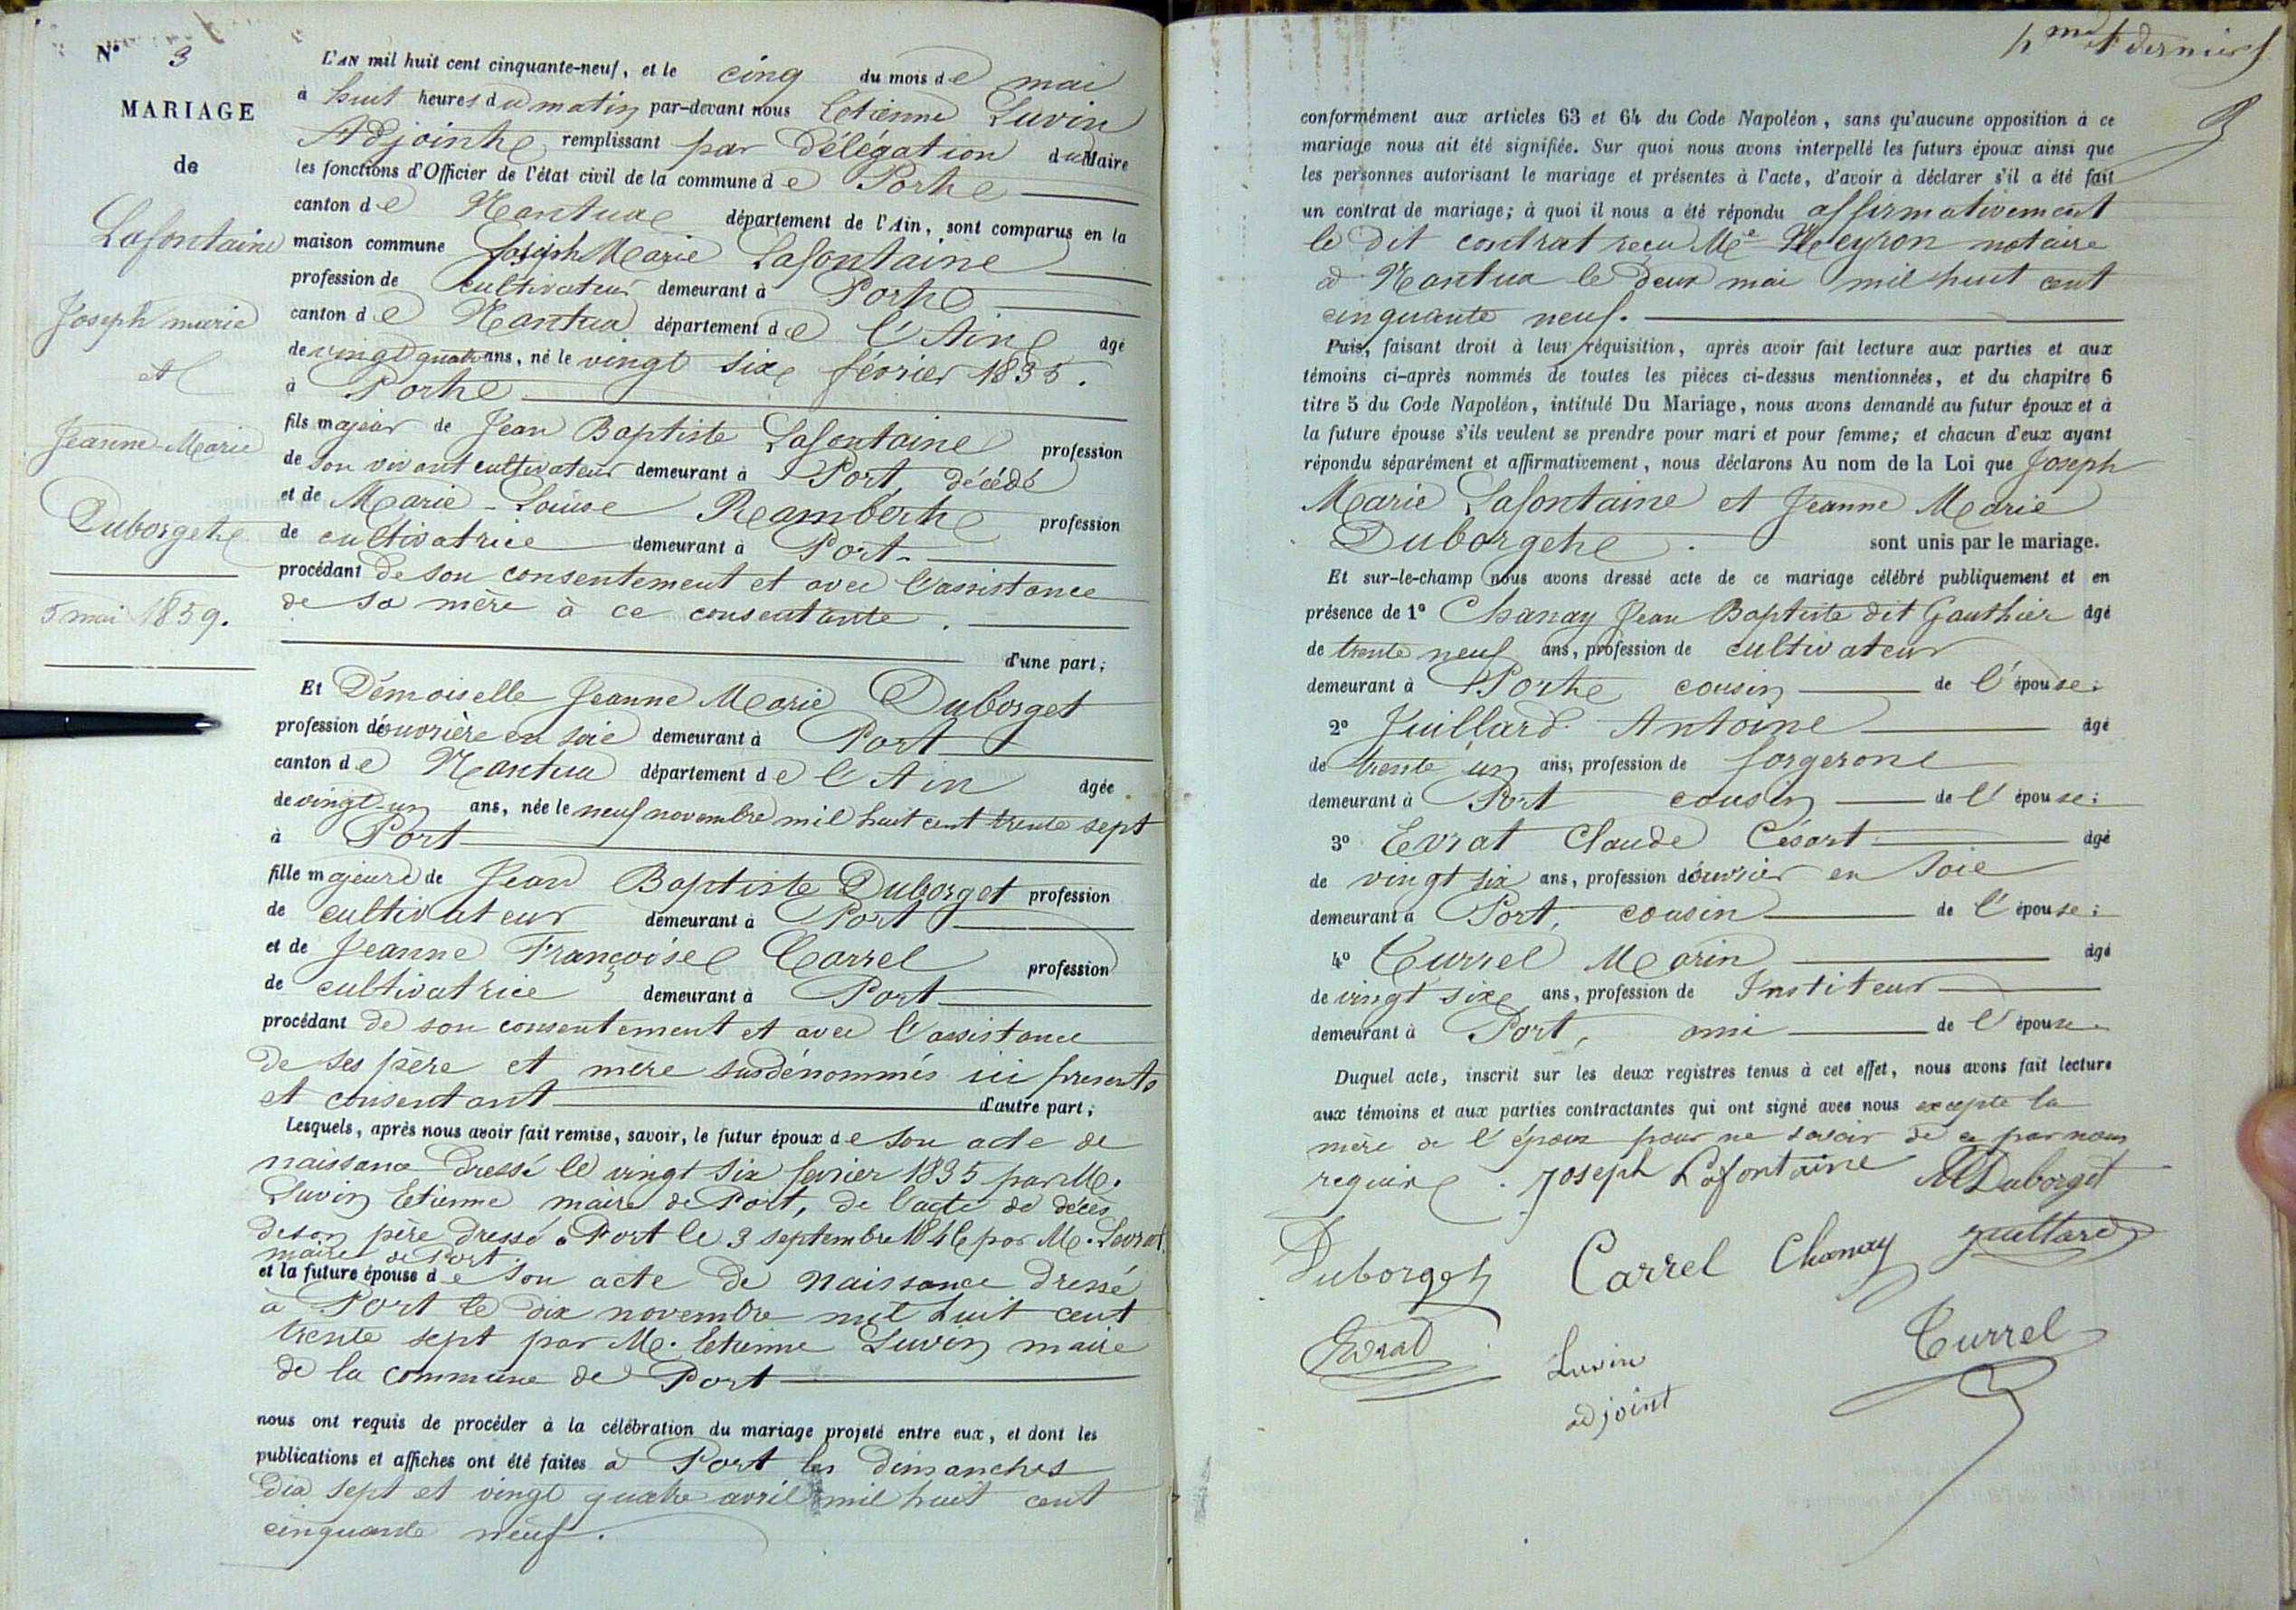 N° 3
MARIAGE
de
Lafontaine
Joseph marie
et
Jeanne Marie
Duborget
5 mai 1859.
L'AN mil huit cent cinquante-neuf, et le cinq du mois de mai
à huit heures du matin par-devant nous Etienne Luvin
Adjoint remplissant par délégation du Maire
les fonctions d'Officier de l'état civil de la commune de Port
canton de Nantua département de l'Ain, sont comparus en la
maison commune Joseph Marie Lafontaine
profession de cultivateur demeurant à Port
canton de Nantua département de l'Ain âgé
de vingt quatre ans, né le vingt six février 1835.
à Port
fils majeur de Jean Baptiste Lafontaine profession
de son vivant cultivateur demeurant à Port, décédé
et de Marie-Louise Rambert profession
de cultivatrice demeurant à Port
procédant de son consentement et avec l'assistance
de sa mère à ce consentante.
d'une part;
Et Demoiselle Jeanne Marie Duborget
profession d'ouvrière en soie demeurant à Port
canton de Nantua département de l'Ain âgée
de vingt-un ans, née le neuf novembre mil huit cent trente sept
à Port
fille majeure de Jean Baptiste Duborget profession
de cultivateur demeurant à Port
et de Jeanne Françoise Carrel profession
de cultivatrice demeurant à Port
procédant de son consentement et avec l'assistance
de ses père et mère susdénommés ici presents
et consentant d'autre part;
Lesquels, après nous avoir fait remise, savoir, le futur époux de son acte de
naissance dressé le vingt six fevrier 1835 par M.
Luvin Etienne maire de Port, de l'acte de décès
de son père dressé à Port le 3 septembre 1846 par M.
maire de Port.
et la future épouse de son acte de naissance dressé
à Port le dix novembre mil huit cent
trente sept par M. Etienne Luvin maire
de la commune de Port
nous ont requis de procéder à la célébration du mariage projeté entre eux, et dont les
publications et affiches ont été faites à Port les dimanches
dix sept et vingt quatre avril mil huit cent
cinquante neuf.
et dernier
conformément aux articles 63 et 64 du Code Napoléon, sans qu'aucune opposition à ce
mariage nous ait été signifiée. Sur quoi nous avons interpellé les futurs époux ainsi que
les personnes autorisant le mariage et présentes à l'acte, d'avoir à déclarer s'il a été fait
un contrat de mariage; à quoi il nous a été répondu affirmativement
le dit contrat reçu Me notaire
à Nantua le deux mai mil huit cent
cinquante neuf.
Puis, faisant droit à leur réquisition, après avoir fait lecture aux parties et aux
témoins ci-après nommés de toutes les pièces ci-dessus mentionnées, et du chapitre 6
titre 5 du Code Napoléon, intitulé Du Mariage, nous avons demandé au futur époux et à
la future épouse s'ils veulent se prendre pour mari et pour femme; et chacun d'eux ayant
répondu séparément et affirmativement, nous déclarons Au nom de la Loi que Joseph
Marie Lafontaine et Jeanne Marie
Duborget sont unis par le mariage.
Et sur-le-champ nous avons dressé acte de ce mariage célébré publiquement et en
présence de 1° Chanay Jean Baptiste dit Gauthier âgé
de trente neuf ans, profession de cultivateur
demeurant à Port cousin de l'épouse;
2° Juillard Antoine âgé
de trente un ans, profession de forgeron
demeurant à Port cousin de l'épouse;
3° Evrat Claude César âgé
de vingt six ans, profession d'ouvrier en soie
demeurant à Port, cousin de l'épouse;
4° Currel Marin âgé
de vingt six ans, profession de Institeur
demeurant à Port, ami de l'épouse.
Duquel acte, inscrit sur les deux registres tenus à cet effet, nous avons fait lecture
aux témoins et aux parties contractantes qui ont signé avec nous excepte la
mère de l'époux pour ne savoir de ce par nous
requise. Joseph Lafontaine MDuborget
Duborget Carrel Chanay Juillard
Evrat Luvin Currel
adjoint